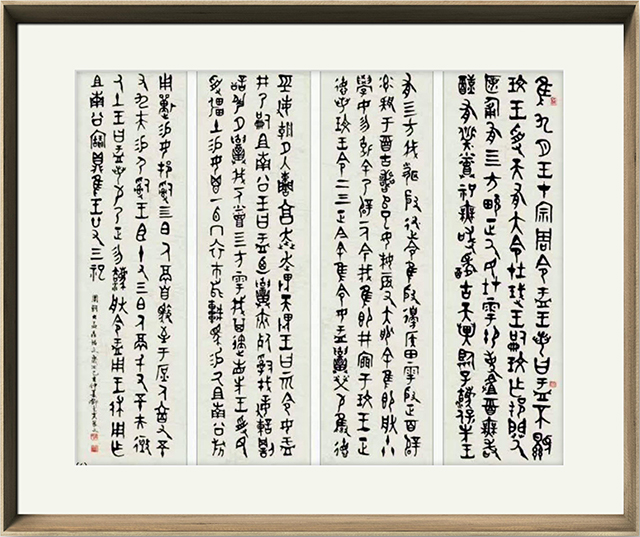 隹九月王才宗周令盂王若曰盂不顯
玟王受天有大令在珷王嗣玟乍邦闢氒
匿匍有四方畯正氒民在雩御事䖒酉無敢
酖有祡烝祀無敢擾古天異臨子法保先王
有四方我聞殷述令隹殷邊侯田雩殷正百辟
率肄于酉古喪師巳女妹辰又大服余隹即朕小
學女勿克余乃辟一人今我隹即井廩于玟王正
德若玟王令二三正今余隹令女盂召榮敬雍德
巠敏朝夕入讕享奔走畏天畏王曰而令女盂
井乃嗣且南公王曰盂迺召夾死司戎敏諫罰
訟夙夕召我一人烝四方雩我其遹省先王受民
受疆土易女鬯一卣冂衣巿舄車馬易乃且南公旂
用易女邦司四白人鬲自馭至于庶人六百又五十
又九夫易尸司王臣十又三白人鬲千又五十夫
土王曰盂若敬乃正勿廢朕令盂用對王休用乍
且南公寶鼎隹王廿又三祀